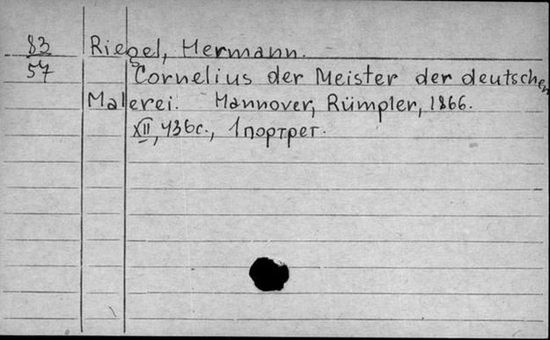 83 Riegel, Hermann.
57 Cornelius der Meister der deutschen
Malerei. Hannover, Rümpler, 1866.
XII, 436с., 1 портрет.